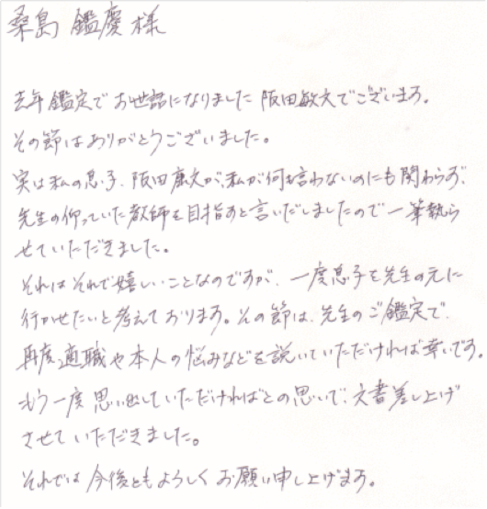 桑島 鑑慶 様
去年鑑定でお世話になりました阪田敏文でございます。
その節はありがとうございました。
実は私の息子、阪田康文が、私が何も言わないのにも関わらず、
先生の仰っていた教師を目指すと言いだしましたので一筆執ら
せていただきました。
それはそれで嬉しいことなのですが、一度息子を先生の元に
行かせたいと考えております。その節は、先生のご鑑定で、
再度適職や本人の悩みなどを説いていただければ幸いです。
もう一度思い出していただければとの思いで、文書差し上げ
させていただきました。
それでは今後ともよろしくお願い申し上げます。